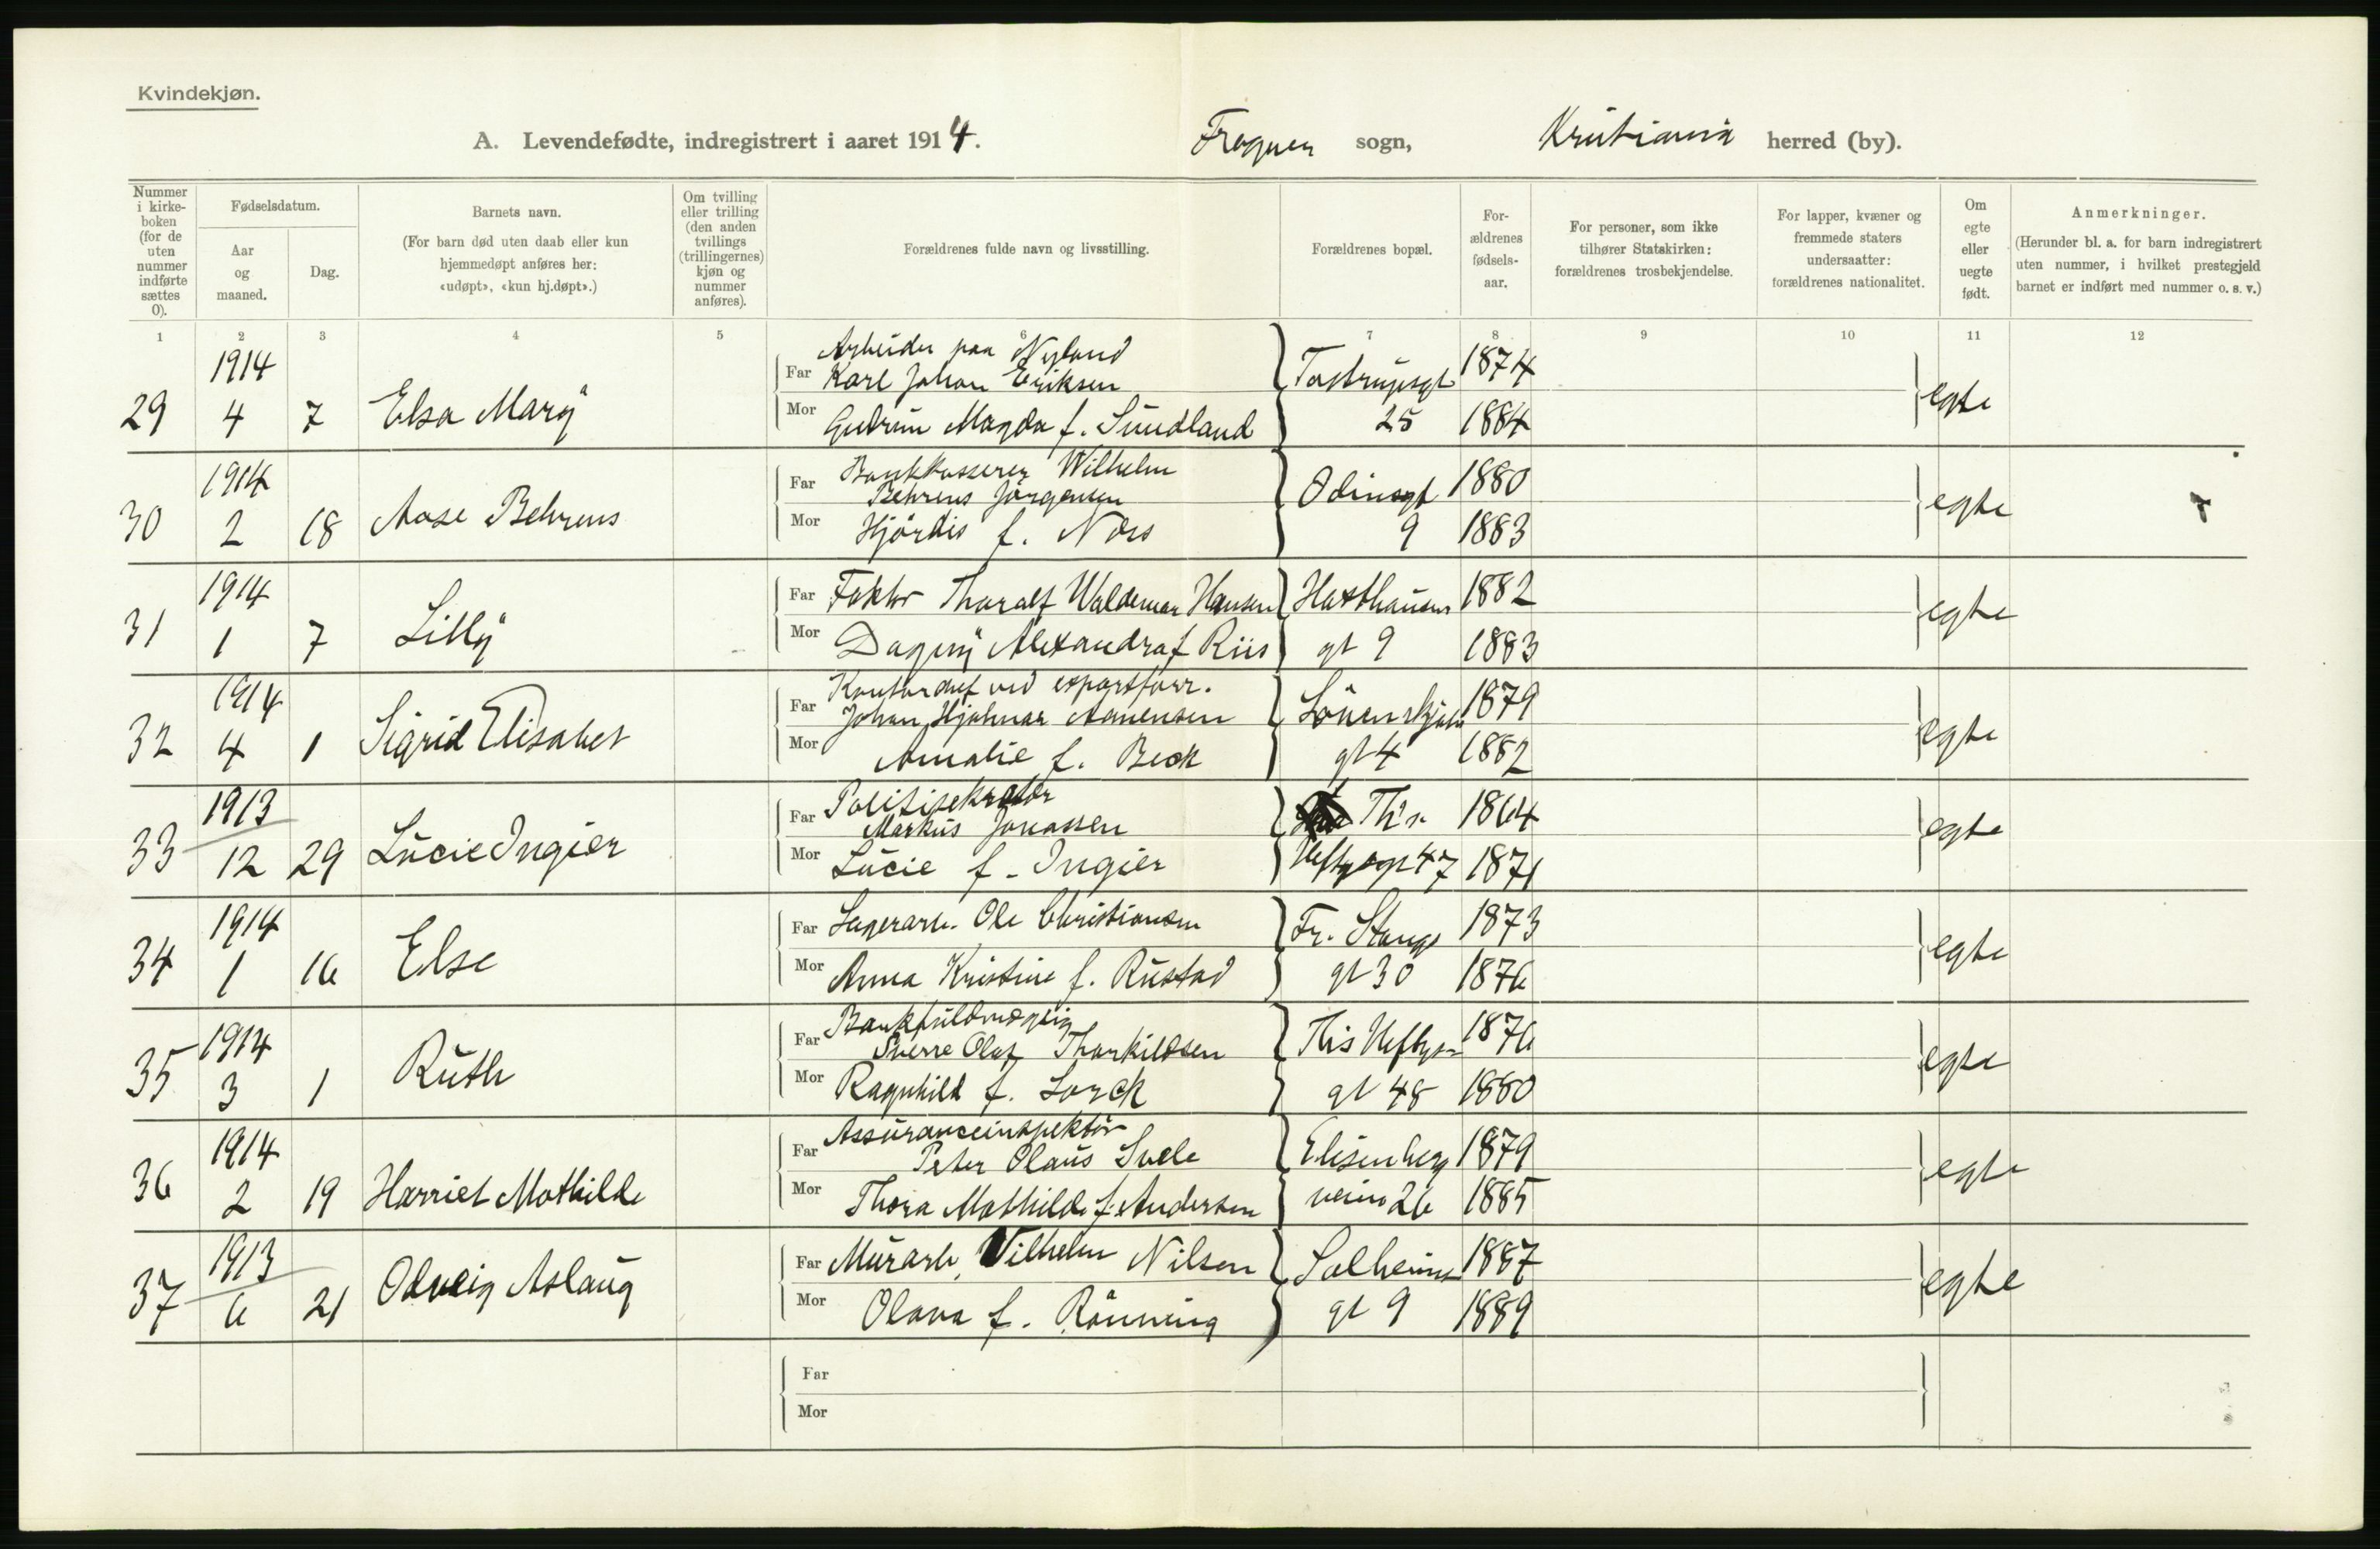 Kvindekjøn.
A. Levendefødte, indregistrert i aaret 1914.
Frogner sogn, Kristiania herred (by).
Nummer i kirke-boken (for de uten nummer indførte sættes 0).
Fødselsdatum.
Aar og maaned.
Dag.
Barnets navn.
(For barn død uten daab eller kun hjemmedøpt anføres her: «udøpt», «kun hj.døpt».)
Om tvilling eller trilling (den anden tvillings (trillingernes) kjøn og nummer anføres).
Forældrenes fulde navn og livsstilling.
Forældrenes bopæl.
For-ældrenes fødsels-aar.
For personer, som ikke tilhører Statskirken: forældrenes trosbekjendelse.
For lapper, kvæner og fremmede staters undersaatter: forældrenes nationalitet.
Om egte eller uegte født.
Anmerkninger.
(Herunder bl. a. for barn indregistrert uten nummer, i hvilket prestegjeld barnet er indført med nummer o. s. v.)
1 2 3 4 5 6 7 8 9 10 11 12
29 1914 4 7 Elsa Mary
Far Arbeider paa Nyland Karl Johan Eriksen Tostrupsgt 1874
Mor Gudrun Magda f. Sundland 25 1884 egte
30 1914 2 18 Aase Behrens
Far Bankkasserer Wilhelm Behrens Jörgensen Odinsgt 1880
Mor Hjördis f. Næss 9 1883 egte
31 1914 1 7 Lilly
Far Faktor Tharalf Waldemar Hansen Haxthausens 1882
Mor Dagny Alexandra f Riis gt 9 1883 egte
32 1914 4 1 Sigrid Elisabet
Far Kontorchef ved exportforr. Johan Hjalmar Aamensen Lövenskjolds 1879
Mor Amalie f. Beck gt 4 1882 egte
33 1913 12 29 Lucie Ingier
Far Politisekretær Markus Jonassen Th's 1864
Mor Lucie f. Ingier Heftyesgt 47 1871 egte
34 1914 1 16 Else
Far Lagerarb. Ole Christiansen Fr. Stangs 1873
Mor Anna Kristine f. Rustad gt 30 1876 egte
35 1914 3 1 Ruth
Far Bankfuldmægtig Sverre Olaf Thorkildsen Ths Heftyes 1876
Mor Ragnhild f. Lorck gt 48 1880 egte
36 1914 2 19 Harriet Mathilde
Far Assuranceinspektör Peter Olaus Svele Elisenberg 1879
Mor Thora Mathilde f. Andersen veien 26 1885 egte
37 1913 6 21 Odveig Aslaug
Far Murarb. Vilhelm Nilsen Solheims 1887
Mor Olava f. Rönning gt 9 1889 egte
Far
Mor